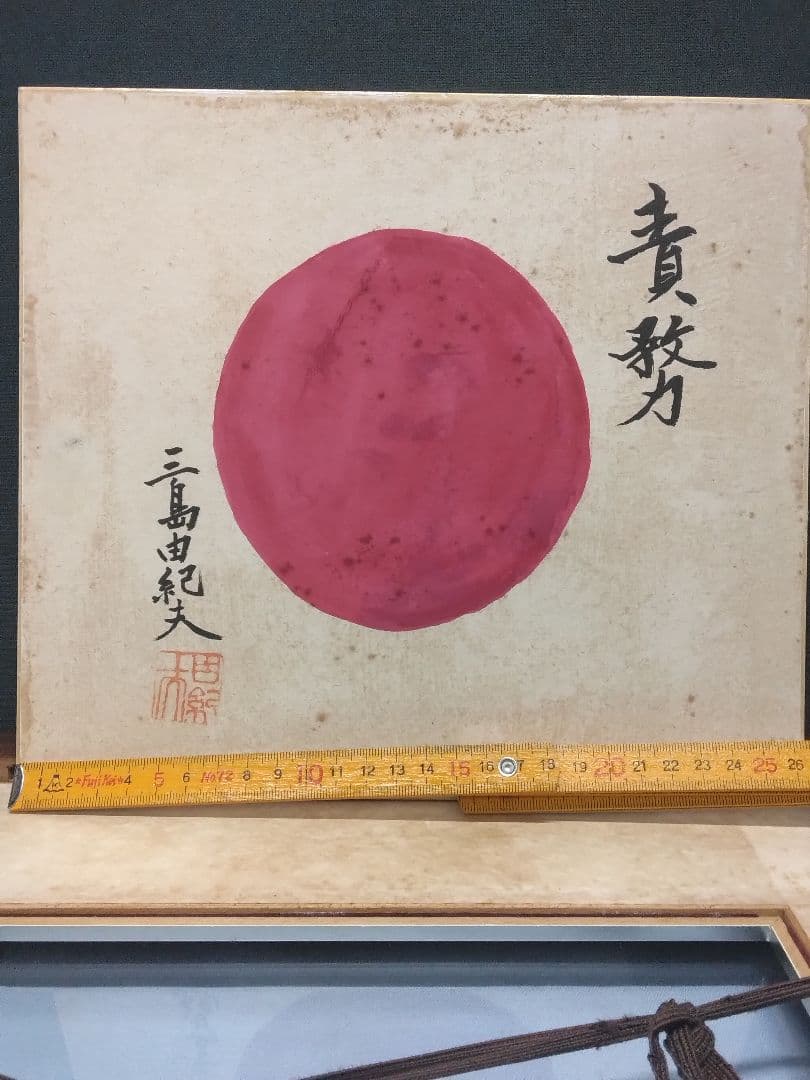 責務
三島由紀夫
由紀夫
1 2 4 5 6 No12 8 9 10 11 12 13 14 15 16 7 18 19 20 21 22 23 24 25 26